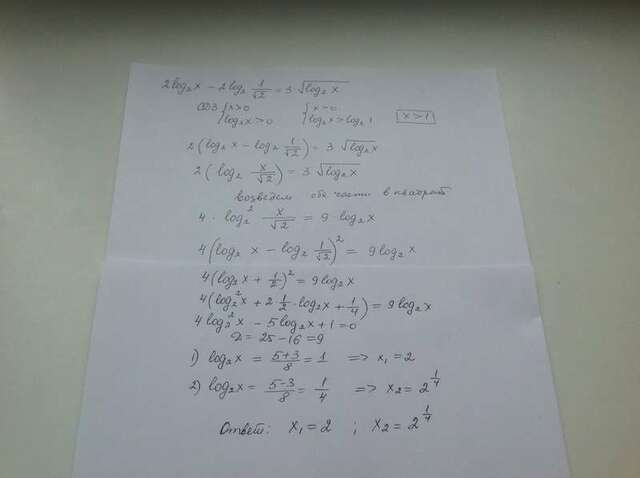 2log₂x − 2log₂ 1/√2 = 3√log₂x
ОДЗ {x>0 {x>0
{log₂x>0 {log₂x>log₂1 x>1
2(log₂x − log₂ 1/√2) = 3√log₂x
2(log₂ x/√2) = 3√log₂x
возведем обе части в квадрат
4 · log₂² x/√2 = 9 · log₂x
4(log₂x − log₂ 1/√2)² = 9log₂x
4(log₂x + 1/2)² = 9log₂x
4(log₂²x + 2·1/2·log₂x + 1/4) = 9log₂x
4log₂²x − 5log₂x + 1 = 0
D = 25−16 = 9
1) log₂x = 5+3/8 = 1 => x₁ = 2
2) log₂x = 5−3/8 = 1/4 => x₂ = 2^1/4
Ответ: x₁ = 2 ; x₂ = 2^1/4